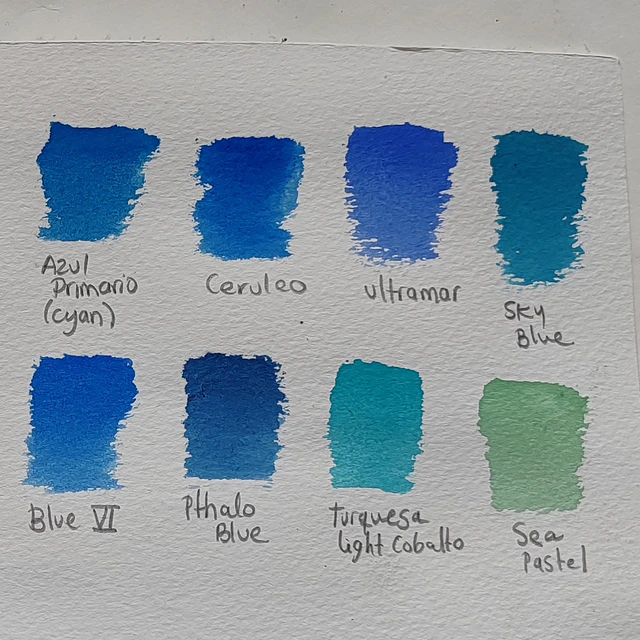 Azul
Primario
(cyan)
Ceruleo
ultramar
Sky
Blue
Blue VI
Pthalo
Blue
Turquesa
light Cobalto
Sea
Pastel